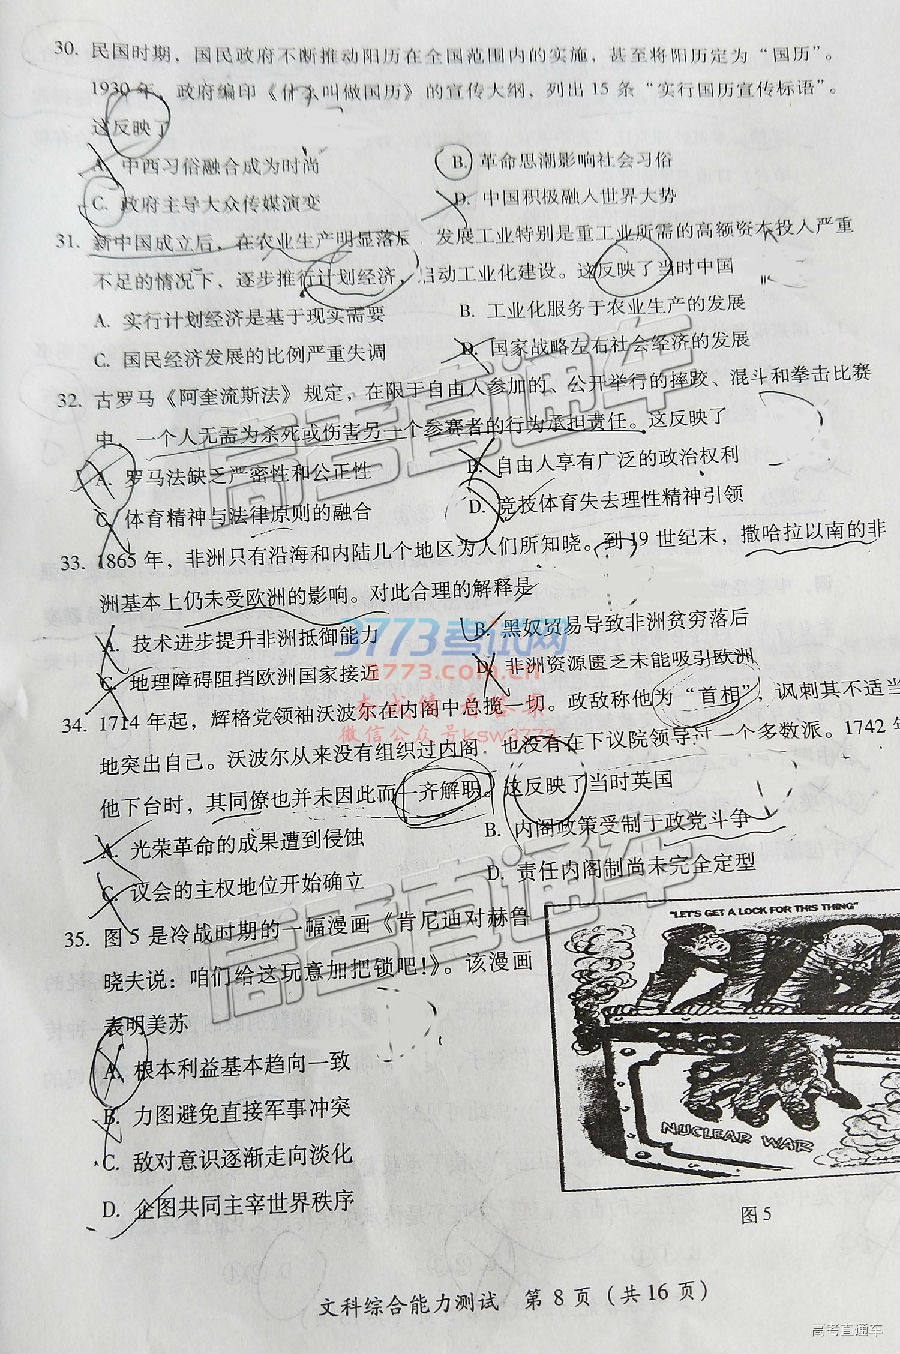 30. 民国时期，国民政府不断推动阳历在全国范围内的实施，甚至将阳历定为“国历”。
1930年，政府编印《什么叫做国历》的宣传大纲，列出15条“实行国历宣传标语”。
这反映了
A. 中西习俗融合成为时尚
B. 革命思潮影响社会习俗
C. 政府主导大众传媒演变
D. 中国积极融入世界大势
31. 新中国成立后，在农业生产明显落后，发展工业特别是重工业所需的高额资本投入严重
不足的情况下，逐步推行计划经济，启动工业化建设。这反映了当时中国
A. 实行计划经济是基于现实需要
B. 工业化服务于农业生产的发展
C. 国民经济发展的比例严重失调
D. 国家战略左右社会经济的发展
32. 古罗马《阿奎流斯法》规定，在限于自由人参加的、公开举行的摔跤、混斗和拳击比赛
中，一个人无需为杀死或伤害另一个参赛者的行为承担责任。这反映了
A. 罗马法缺乏严密性和公正性
B. 自由人享有广泛的政治权利
C. 体育精神与法律原则的融合
D. 竞技体育失去理性精神引领
33. 1865年，非洲只有沿海和内陆几个地区为人们所知晓。到19世纪末，撒哈拉以南的非
洲基本上仍未受欧洲的影响。对此合理的解释是
A. 技术进步提升非洲抵御能力
B. 黑奴贸易导致非洲贫穷落后
C. 地理障碍阻挡欧洲国家接近
D. 非洲资源匮乏未能吸引欧洲
34. 1714年起，辉格党领袖沃波尔在内阁中总揽一切。政敌称他为“首相”，讽刺其不适当
地突出自己。沃波尔从来没有组织过内阁，也没有在下议院领导过一个多数派。1742年
他下台时，其同僚也并未因此而一齐解职。这反映了当时英国
A. 光荣革命的成果遭到侵蚀
B. 内阁政策受制于政党斗争
C. 议会的主权地位开始确立
D. 责任内阁制尚未完全定型
35. 图5是冷战时期的一幅漫画《肯尼迪对赫鲁
晓夫说：咱们给这玩意加把锁吧！》。该漫画
表明美苏
A. 根本利益基本趋向一致
B. 力图避免直接军事冲突
C. 敌对意识逐渐走向淡化
D. 企图共同主宰世界秩序
"LET'S GET A LOCK FOR THIS THING"
NUCLEAR WAR
图5
文科综合能力测试 第8页（共16页）
高考直通车
高考直通车
3773考试网
3773.com.cn
查成绩 看答案
微信公众号ksw3773
高考直通车